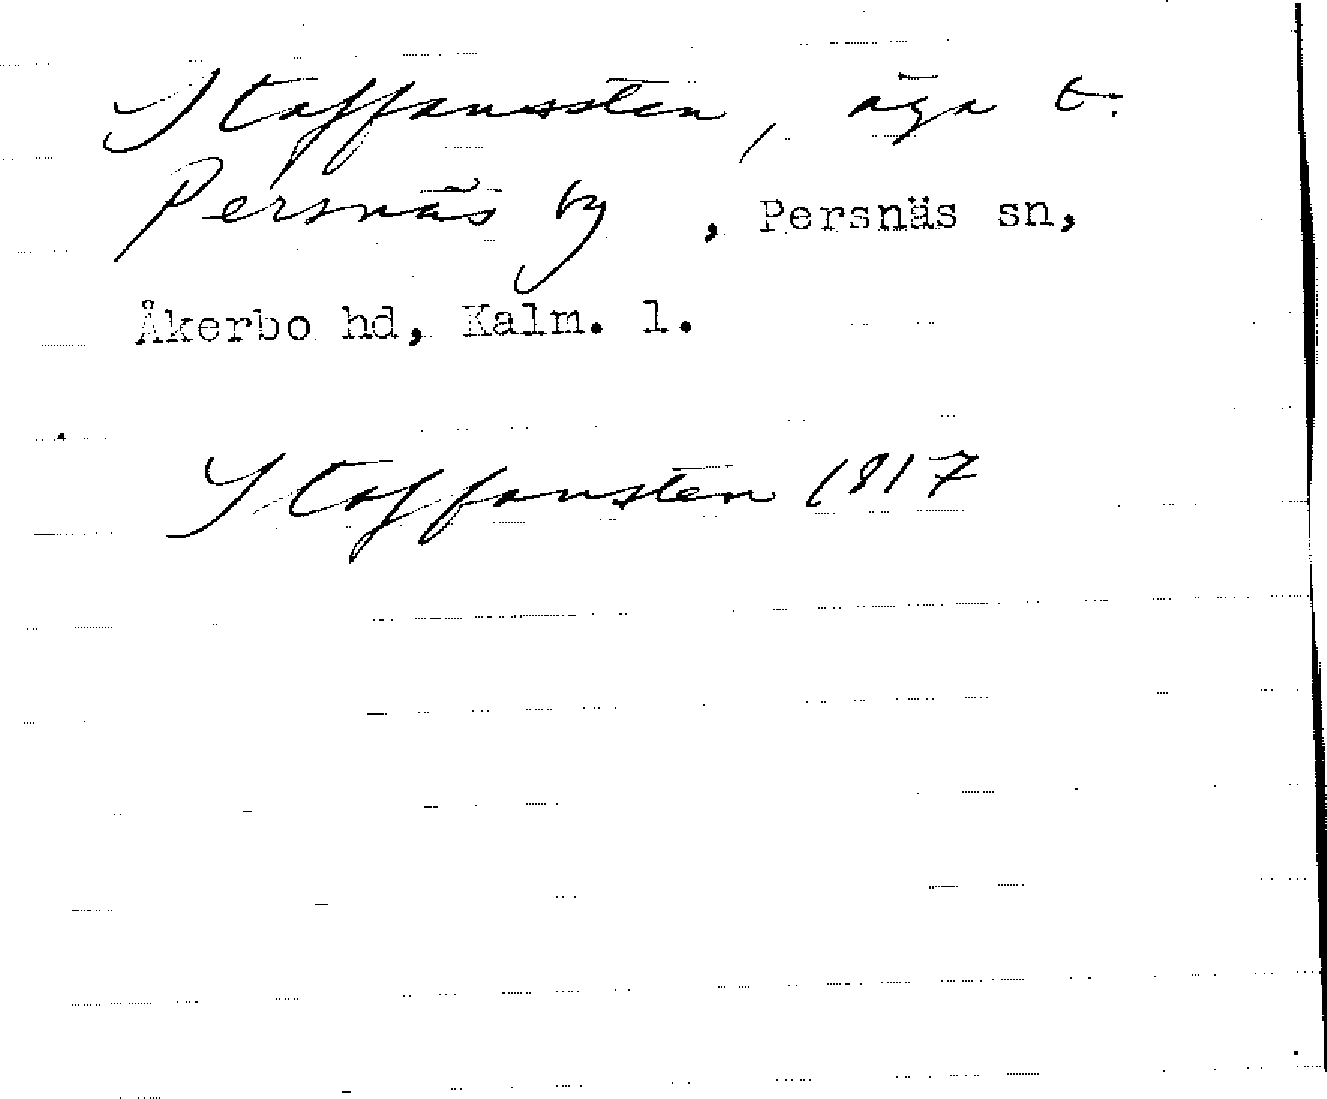 Staffanssten, äga t.
Persnäs by, Persnäs sn,
Åkerbo hd, Kalm. l.
Staffansten 1817